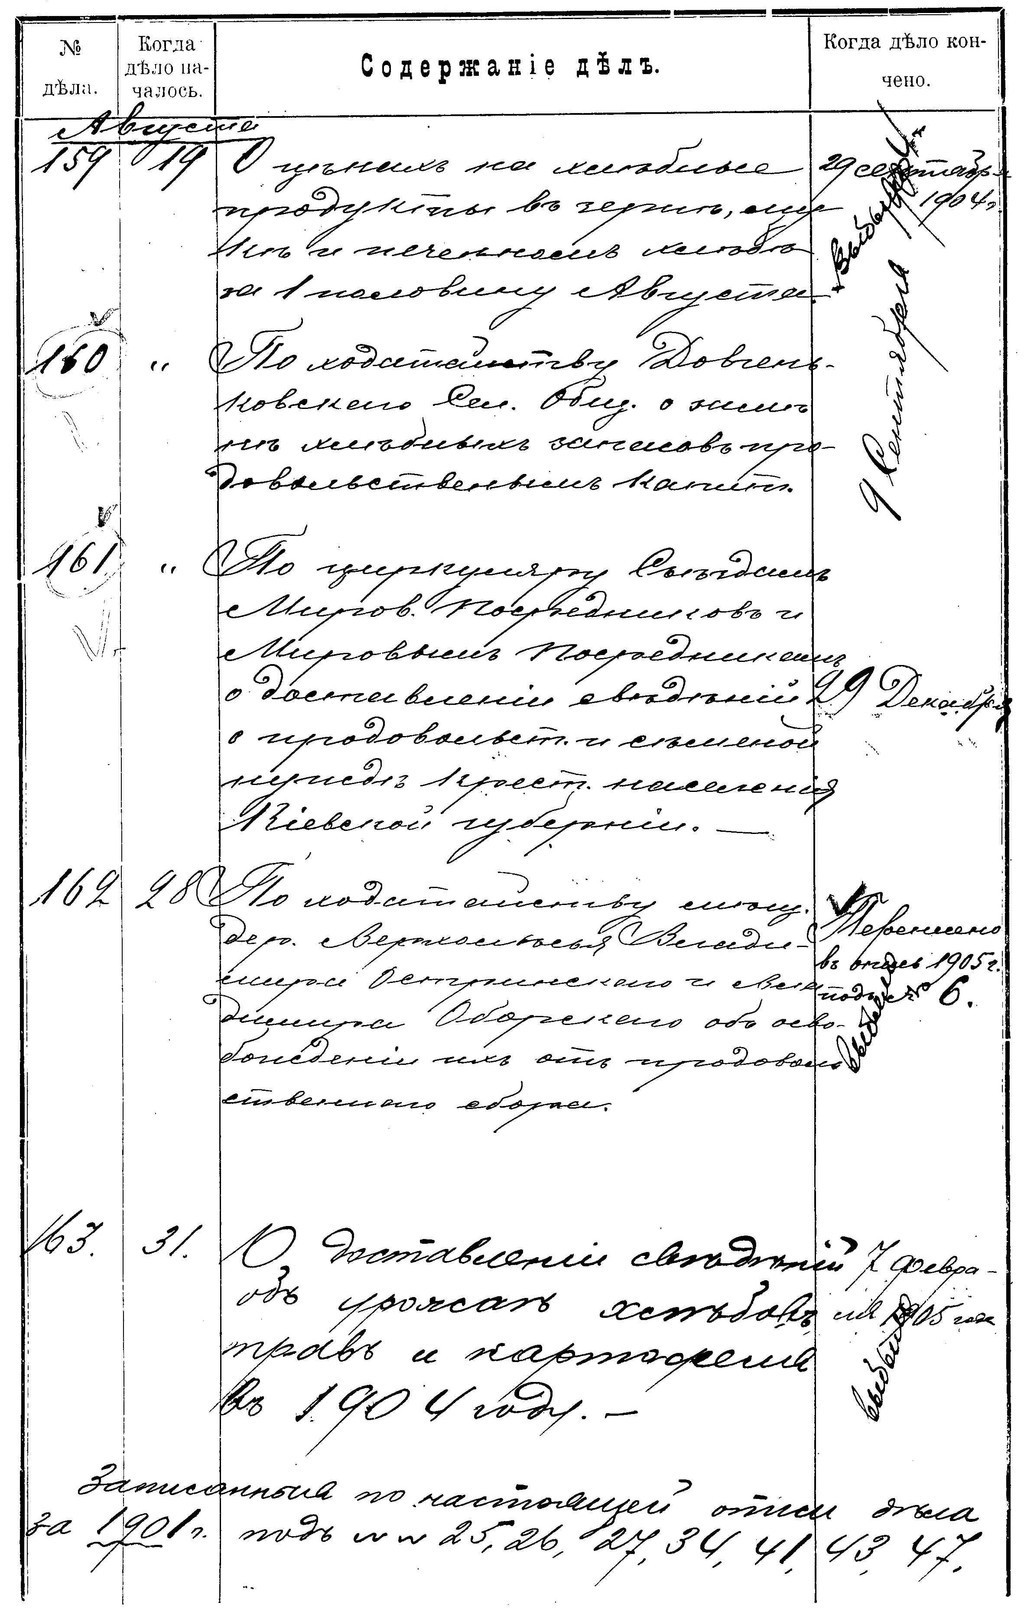 № дѣла.
Когда дѣло на-
чалось.
Содержаніе дѣлъ.
Когда дѣло кон-
чено.
Августа
159 19 О цѣнахъ на хлѣбные
продукты въ зернѣ, му-
кѣ и печеномъ хлѣбѣ
за 1 половину Августа.
29 сентября
1904 г.
160 " По ходатайству Довгень-
ковскаго Сел. Общ. о замѣ-
нѣ хлѣбныхъ запасовъ про-
довольственнымъ капит.
9 Сентября
161 " По циркуляру Съѣздамъ
Миров. Посредниковъ и
Мировымъ Посредникамъ
о доставленіи свѣдѣній
о продовольст. и сѣменной
нуждѣ крест. населенія
Кіевской губерніи. —
29 Декабря
162 28 По ходатайству
дер. Верхолѣсья Влади-
міра Остринскаго и Вла
диміра Оборскаго объ осво-
божденіи ихъ отъ продоволь
ственнаго сбора.
Перенесено
въ опись 1905 г.
подъ № 6.
163. 31. О доставленіи свѣдѣній
объ урожаѣ хлѣбовъ,
травъ и картофеля
въ 1904 году. —
7 февра-
ля 1905 года
Записанныя по настоящей описи дѣла
за 1901 г. подъ №№ 25, 26, 27, 34, 41, 43, 47.